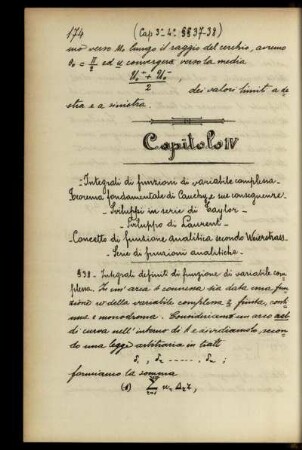 174 (Cap 3º-4º §§ 37-38)
mo verso u₀ lungo il raggio del cerchio, avremo
= π/2 ed u convergerà verso la media
(U₀⁻ + U₀⁻)/2 , dei valori limiti a de
stra e a sinistra.
Capitolo IV
- Integrali di funzioni di variabile complessa -
Teorema fondamentale di Cauchy e sue conseguenze.
- Sviluppi in serie di Taylor -
- Sviluppo di Laurent -
- Concetto di funzione analitica secondo Weierstrass
- Serie di funzioni analitiche -
§38. - Integrali definiti di funzione di variabile com-
plessa. In un'area A connessa sia data una fun
zione w della variabile complessa z, finita, conti
nua e monodroma. Consideriamo un arco
di curva nell'interno di A e dividiamolo, secon
do una legge arbitraria in tratti
formiamo la somma
(1)